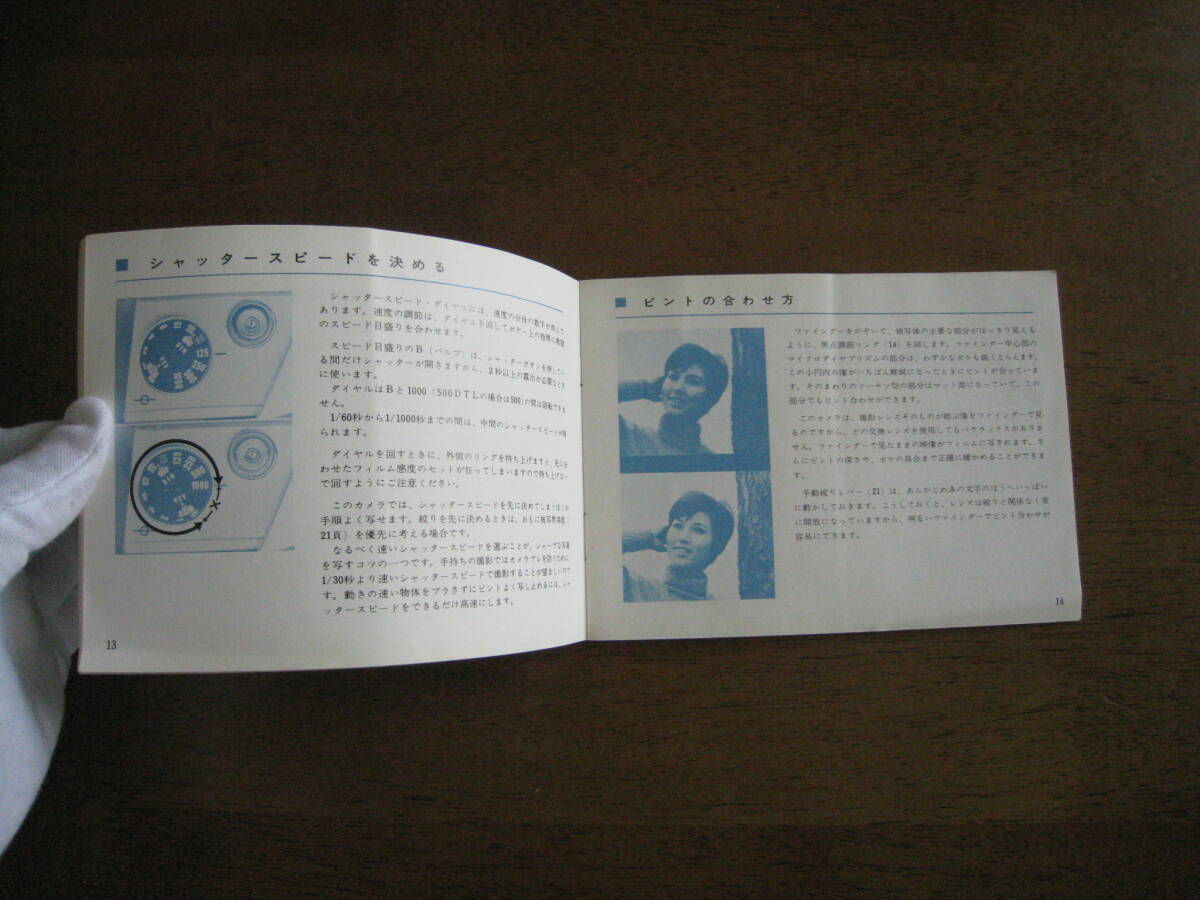 シャッタースピードを決める
シャッタースピード・ダイヤルには、速度の分母の数字が刻んで
あります。速度の調節は、ダイヤルを回してボデー上の指標に希望
のスピード目盛りを合わせます。
スピード目盛りのB(バルブ)は、シャッターボタンを押してい
る間だけシャッターが開きますから、2秒以上の露出が必要なとき
に使います。
ダイヤルはBと1000(500DTLの場合は500)の間は回転できま
せん。
1/60秒から1/1000秒までの間は、中間のシャッタースピードが得
られます。
ダイヤルを回すときに、外側のリングを持ち上げますと、先に合
わせたフィルム感度のセットが狂ってしまいますので持ち上げない
で回すようにご注意ください。
このカメラでは、シャッタースピードを先に決めてしまうほうが
手順よく写せます。絞りを先に決めるときは、おもに被写界深度(
21頁)を優先に考える場合です。
なるべく速いシャッタースピードを選ぶことが、シャープな写真
を写すコツの一つです。手持ちの撮影ではカメラブレを防ぐために、
1/30秒より速いシャッタースピードで撮影することが望ましいので
す。動きの速い物体をブラさずにピントよく写し止めるには、シャ
ッタースピードをできるだけ高速にします。
13
ピントの合わせ方
ファインダーをのぞいて、被写体の主要な部分がはっきり見える
ように、焦点調節リング(14)を回します。ファインダー中心部の
マイクロダイヤプリズムの部分は、わずかなボケも鋭くとらえます。
この小円内の像がいちばん鮮鋭になったときにピントが合っていま
す。そのまわりのドーナツ型の部分はマット面になっていて、この
部分でもピント合わせができます。
このカメラは、撮影レンズそのものが結ぶ像をファインダーで見
るのですから、どの交換レンズを使用してもパララックスがありま
せん。ファインダーで見たままの映像がフィルムに写されます。さ
らにピントの深さや、ボケの具合まで正確に確かめることができま
す。
手動絞りレバー(21)は、あらかじめAの文字のほうへいっぱい
に動かしておきます。こうしておくと、レンズは絞りと関係なく常
に開放になっていますから、明るいファインダーでピント合わせが
容易にできます。
14